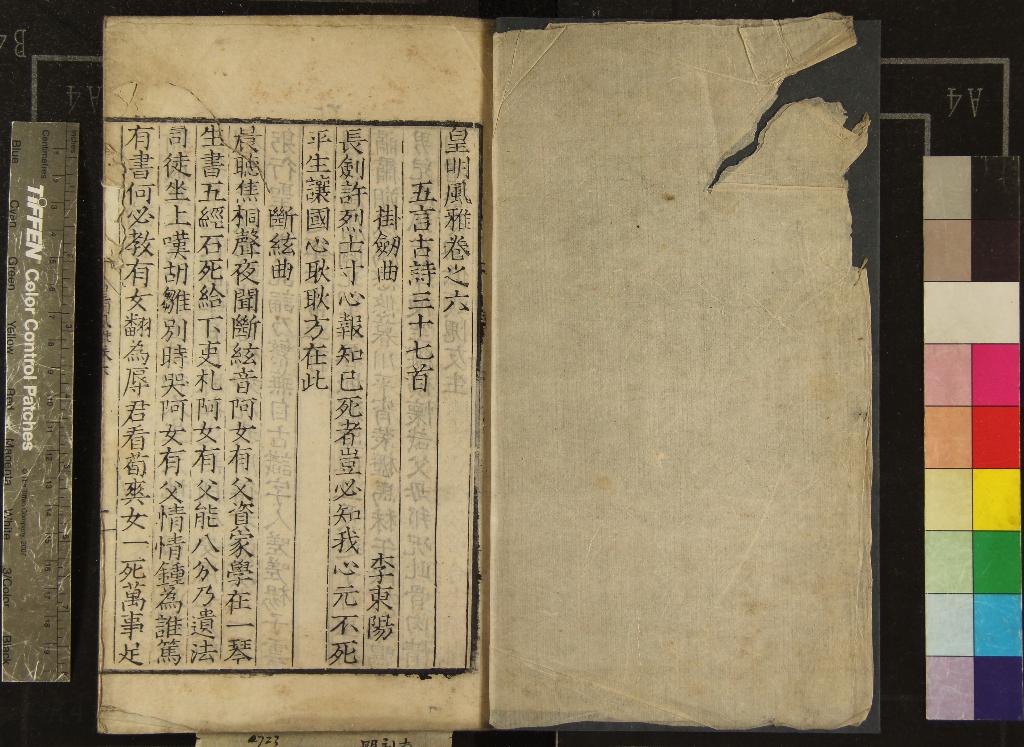 皇明風雅卷之六
五言古詩三十七首
掛劒曲 李東陽
長劍許烈士寸心報知己死者豈必知我心元不死
平生讓國心耿耿方在此
斷絃曲
晨聽焦桐聲夜聞斷絃音阿女有父資家學在一琴
生書五經石死給下吏札阿女有父能八分乃遺法
司徒坐上嘆胡雛別時哭阿女有父情情鍾為誰篤
有書何必教有女翻為辱君看荀爽女一死萬事足
TIFFEN Color Control Patches
Blue Cyan Green Yellow Red Magenta White 3/Color Black
Centimetres
Inches
A4
A4
B4
2723